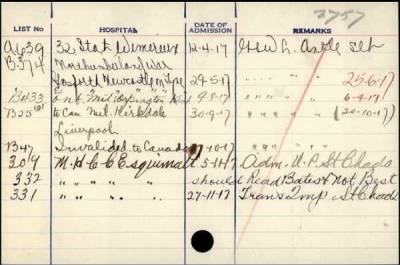 2757
LIST No HOSPITAL DATE OF ADMISSION REMARKS
A639 32 Stat Wimereux 12-4-17 Ankle
B374 Northumberland War
Gosforth Newcastle on Tyne 24-5-17 " " " 25-6-17
B433 Ont Mil Orpington Kent 9-8-17 " " "
B25 to Can Mil Kirkdale 30-9-17 " " " (20-10-17)
Liverpool
B47 Invalided to Canada -10-17 " " "
309 M.H.C.C Esquimalt 5-11-17 Adm. St Chads
332 " " " " should Read Bates & Not Best
331 " " " " 27-11-17 Trans Imp St Chads